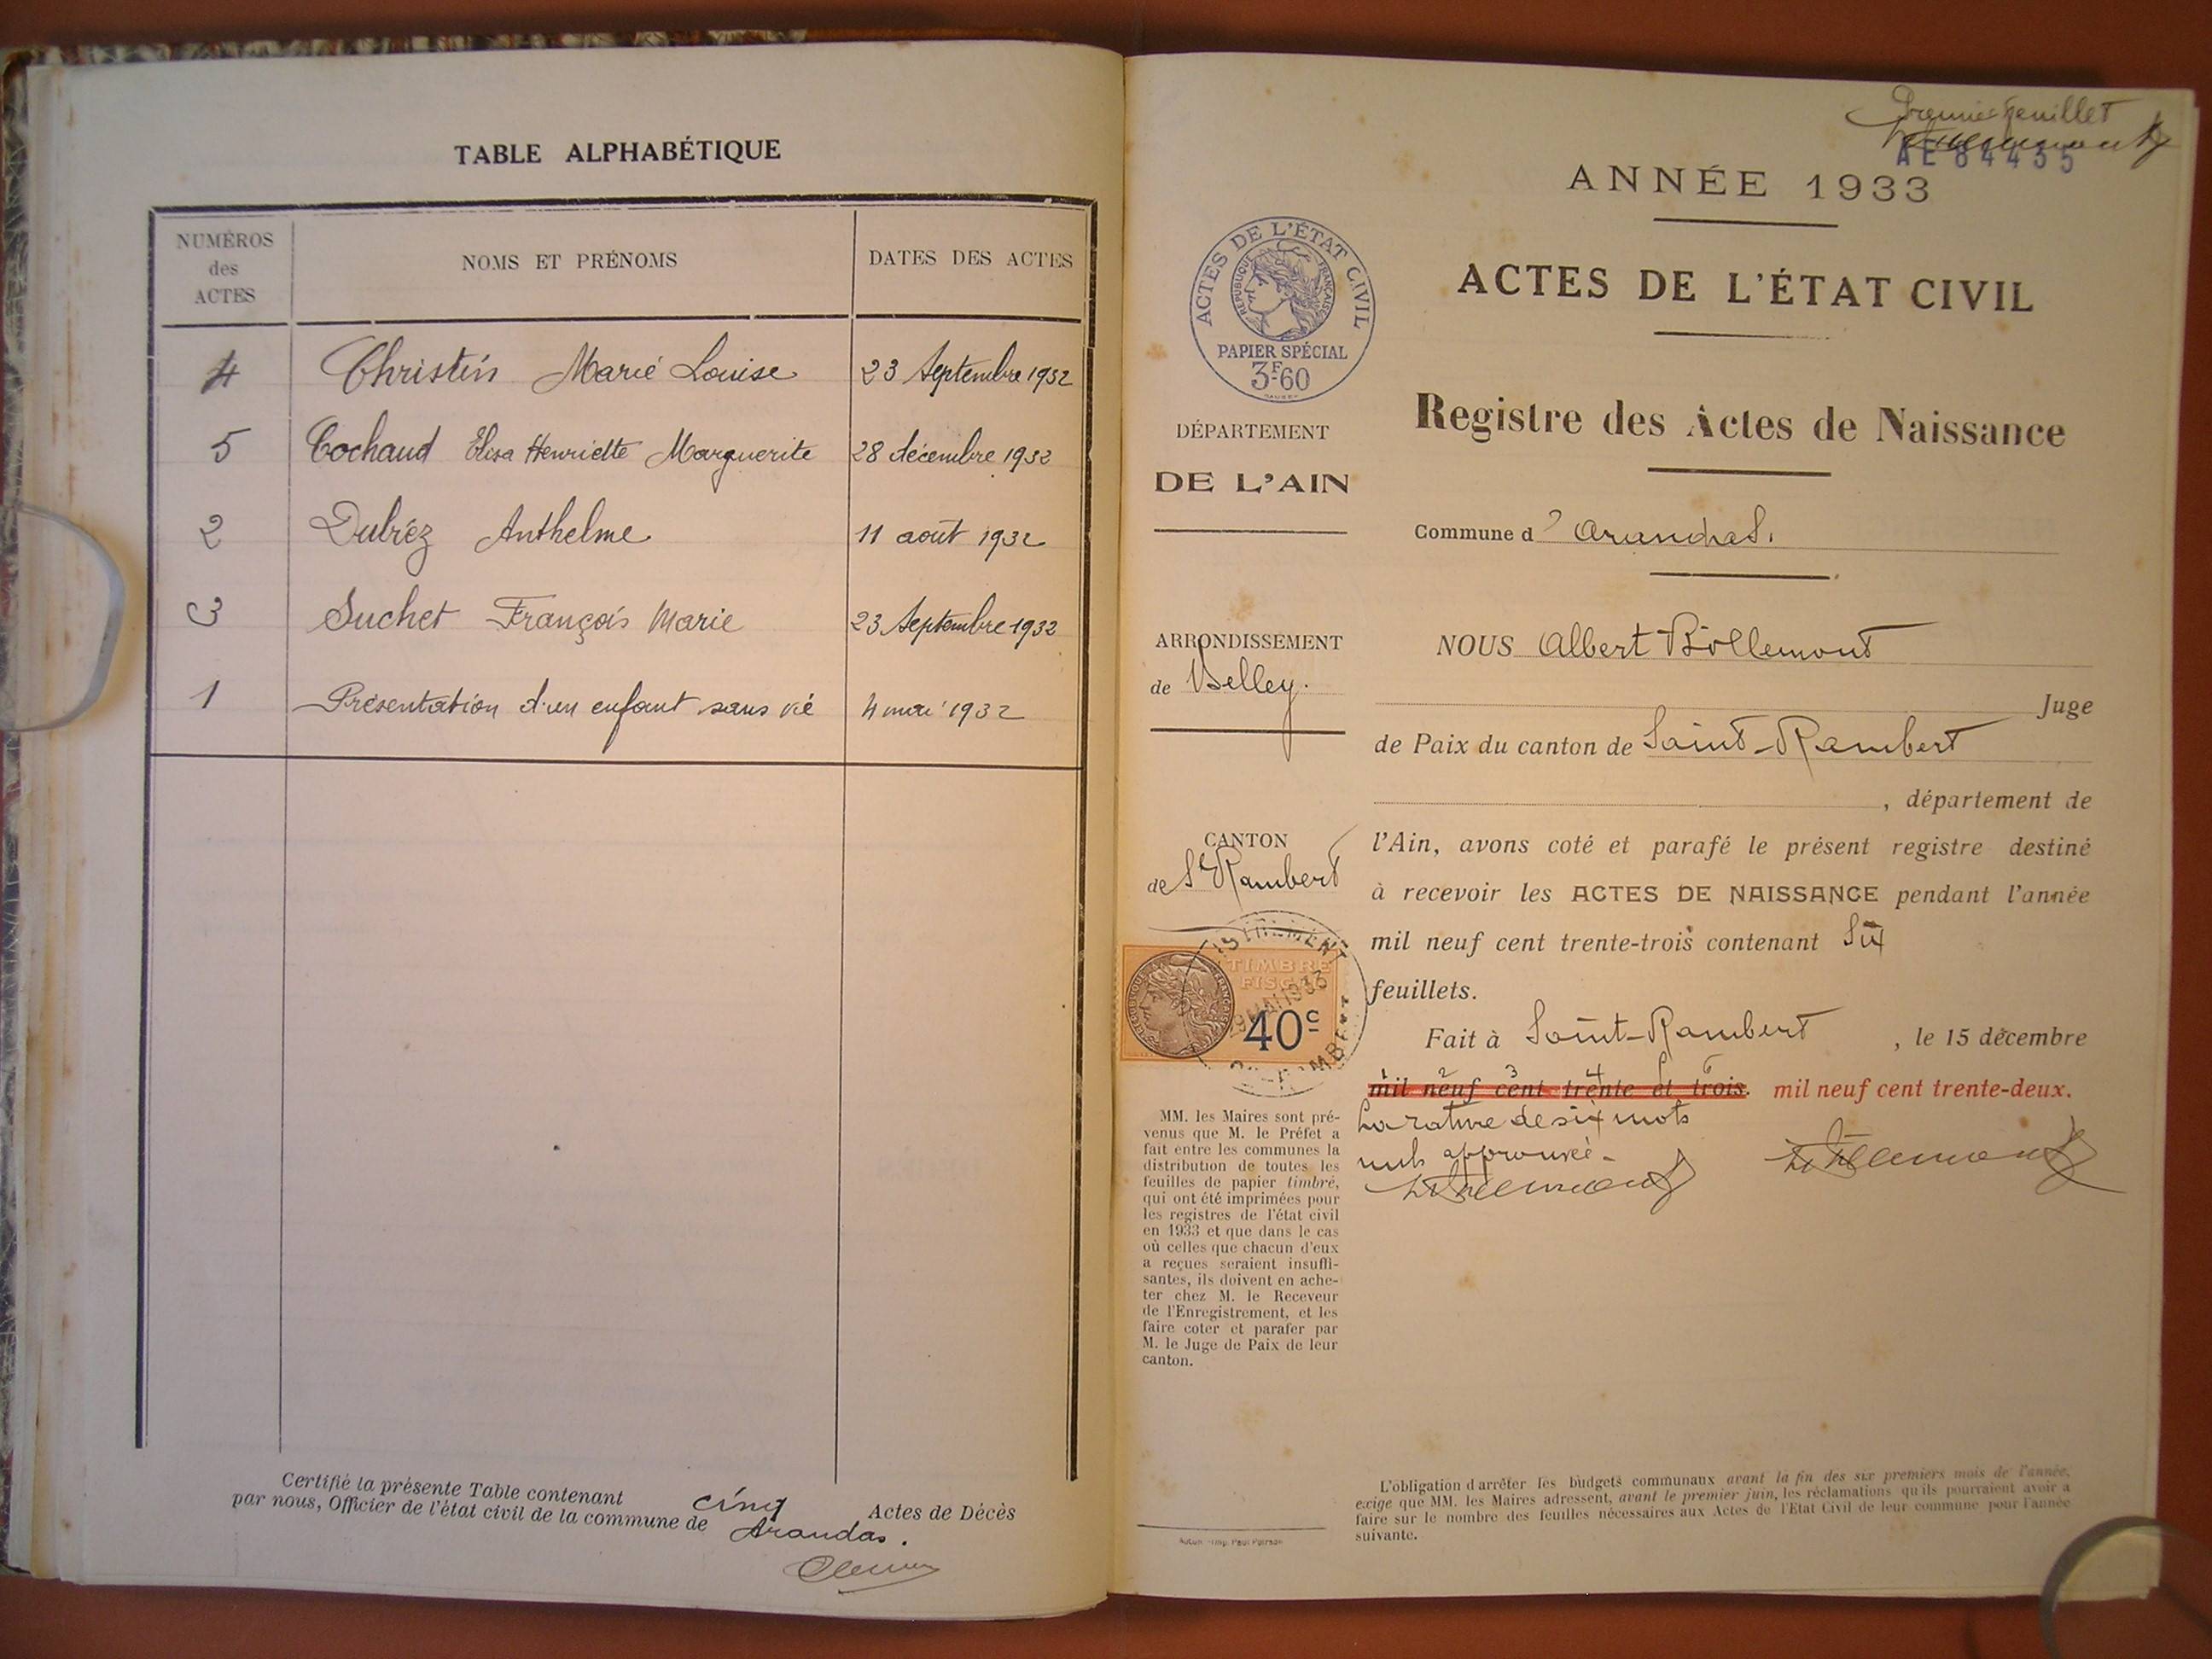 TABLE ALPHABÉTIQUE
NUMÉROS des ACTES
NOMS ET PRÉNOMS
DATES DES ACTES
4 Christin Marie Louise 23 Septembre 1932
5 Cochaud Elisa Henriette Marguerite 28 décembre 1932
2 Dubréz Anthelme 11 août 1932
3 Suchet François Marie 23 Septembre 1932
1 Présentation d'un enfant sans vie 4 mai 1932
Certifié la présente Table contenant cinq Actes de Décès
par nous, Officier de l'état civil de la commune de Arandas.
Premier feuillet
AE 84435
ANNÉE 1933
ACTES DE L'ÉTAT CIVIL
Registre des Actes de Naissance
Commune d' Arandas.
ACTES DE L'ÉTAT CIVIL
RÉPUBLIQUE FRANÇAISE
PAPIER SPÉCIAL
3F60
DÉPARTEMENT
DE L'AIN
ARRONDISSEMENT
de Belley.
CANTON
de St Rambert
TIMBRE
FISCAL
40c
NOUS Albert Billemont
Juge
de Paix du canton de Saint-Rambert
, département de
l'Ain, avons coté et parafé le présent registre destiné
à recevoir les ACTES DE NAISSANCE pendant l'année
mil neuf cent trente-trois contenant Six
feuillets.
Fait à Saint-Rambert , le 15 décembre
1 2 3 4 5 6
mil neuf cent trente et trois. mil neuf cent trente-deux.
La rature de six mots
nuls approuvée -
MM. les Maires sont pré-
venus que M. le Préfet a
fait entre les communes la
distribution de toutes les
feuilles de papier timbré,
qui ont été imprimées pour
les registres de l'état civil
en 1933 et que dans le cas
où celles que chacun d'eux
a reçues seraient insuffi-
santes, ils doivent en ache-
ter chez M. le Receveur
de l'Enregistrement, et les
faire coter et parafer par
M. le Juge de Paix de leur
canton.
L'obligation d'arrêter les budgets communaux avant la fin des six premiers mois de l'année,
exige que MM. les Maires adressent, avant le premier juin, les réclamations qu'ils pourraient avoir à
faire sur le nombre des feuilles nécessaires aux Actes de l'Etat Civil de leur commune pour l'année
suivante.